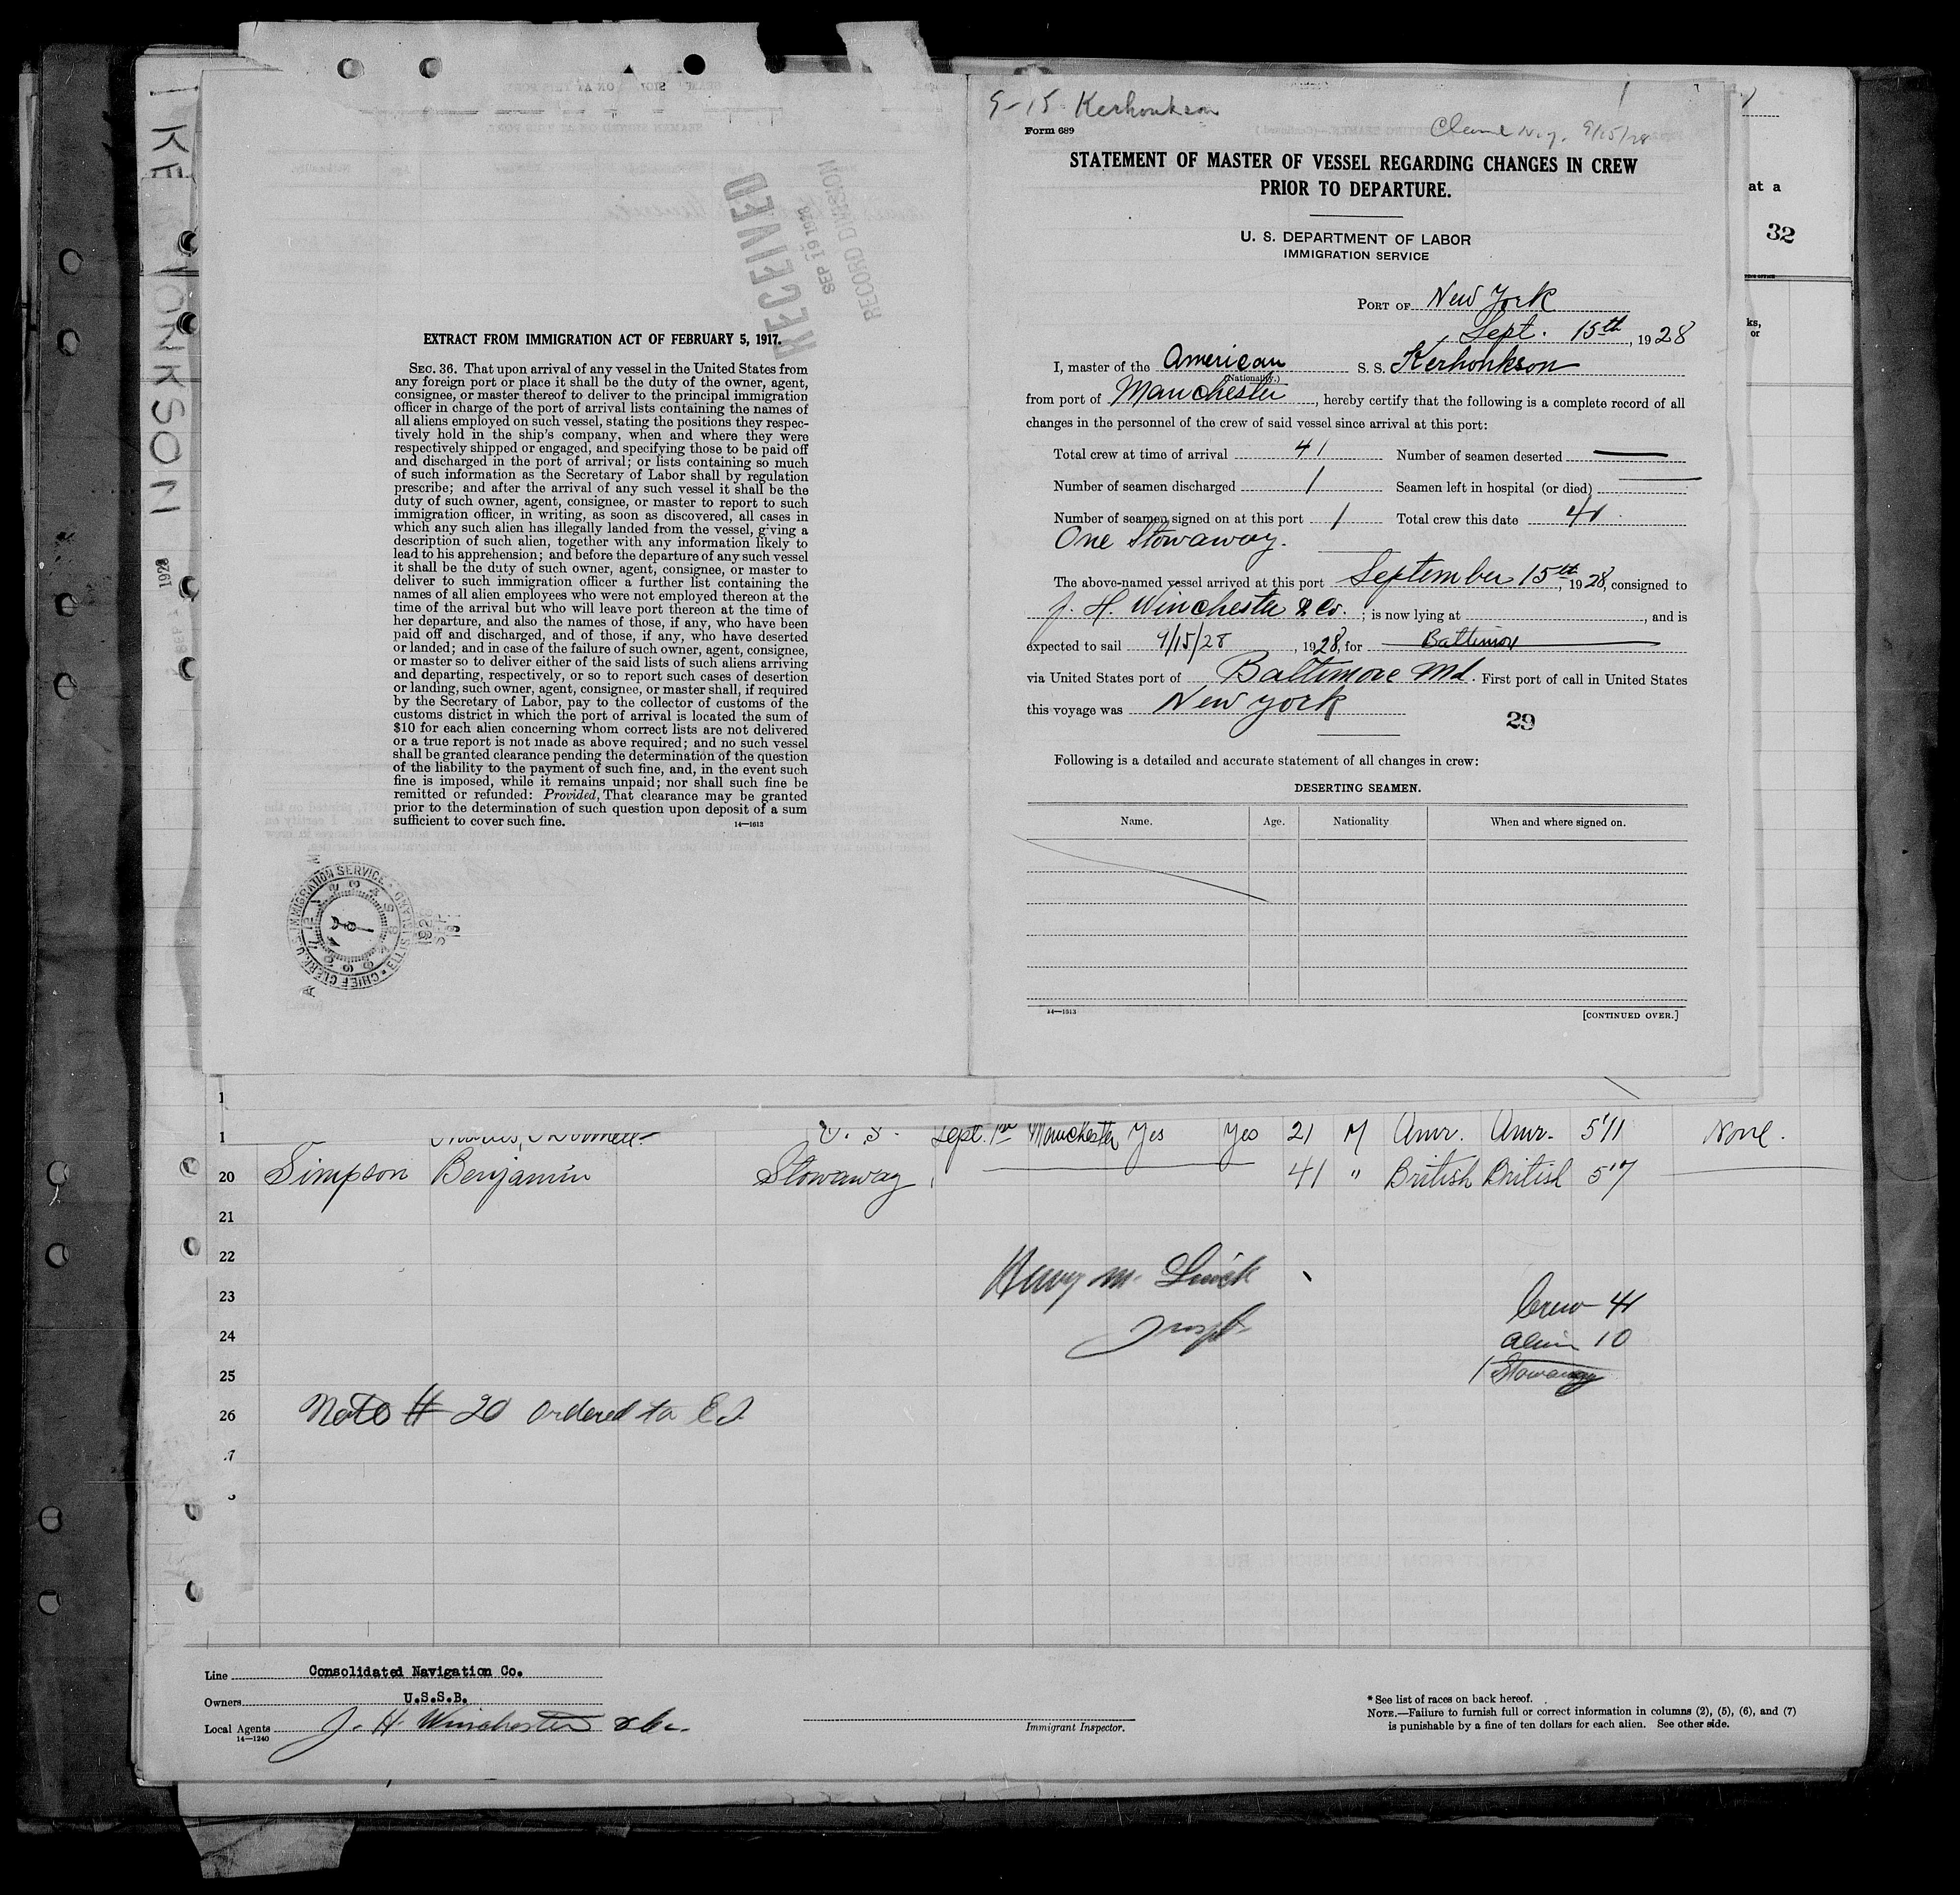 KERHONKSON
1928
RECEIVED
SEP 19 1928
RECORD DIVISION
EXTRACT FROM IMMIGRATION ACT OF FEBRUARY 5, 1917.
SEC. 36. That upon arrival of any vessel in the United States from
any foreign port or place it shall be the duty of the owner, agent,
consignee, or master thereof to deliver to the principal immigration
officer in charge of the port of arrival lists containing the names of
all aliens employed on such vessel, stating the positions they respec-
tively hold in the ship's company, when and where they were
respectively shipped or engaged, and specifying those to be paid off
and discharged in the port of arrival; or lists containing so much
of such information as the Secretary of Labor shall by regulation
prescribe; and after the arrival of any such vessel it shall be the
duty of such owner, agent, consignee, or master to report to such
immigration officer, in writing, as soon as discovered, all cases in
which any such alien has illegally landed from the vessel, giving a
description of such alien, together with any information likely to
lead to his apprehension; and before the departure of any such vessel
it shall be the duty of such owner, agent, consignee, or master to
deliver to such immigration officer a further list containing the
names of all alien employees who were not employed thereon at the
time of the arrival but who will leave port thereon at the time of
her departure, and also the names of those, if any, who have been
paid off and discharged, and of those, if any, who have deserted
or landed; and in case of the failure of such owner, agent, consignee,
or master so to deliver either of the said lists of such aliens arriving
and departing, respectively, or so to report such cases of desertion
or landing, such owner, agent, consignee, or master shall, if required
by the Secretary of Labor, pay to the collector of customs of the
customs district in which the port of arrival is located the sum of
$10 for each alien concerning whom correct lists are not delivered
or a true report is not made as above required; and no such vessel
shall be granted clearance pending the determination of the question
of the liability to the payment of such fine, and, in the event such
fine is imposed, while it remains unpaid; nor shall such fine be
remitted or refunded: Provided, That clearance may be granted
prior to the determination of such question upon deposit of a sum
sufficient to cover such fine.
14—1613
CHIEF CLERK, U.S. IMMIGRATION SERVICE • ELLIS ISLAND
9-15 Kerhonkson
9/15/28
Form 689
STATEMENT OF MASTER OF VESSEL REGARDING CHANGES IN CREW
PRIOR TO DEPARTURE.
U. S. DEPARTMENT OF LABOR
IMMIGRATION SERVICE
PORT OF New York
Sept. 15th, 1928
I, master of the American S. S. Kerhonkson
(Nationality.)
from port of Manchester, hereby certify that the following is a complete record of all
changes in the personnel of the crew of said vessel since arrival at this port:
Total crew at time of arrival 41 Number of seamen deserted —
Number of seamen discharged 1 Seamen left in hospital (or died) —
Number of seamen signed on at this port 1 Total crew this date 41
One Stowaway.
The above-named vessel arrived at this port September 15th, 1928, consigned to
J. H. Winchester & Co. ; is now lying at , and is
expected to sail 9/15/28, 1928, for Baltimore
via United States port of Baltimore Md. First port of call in United States
this voyage was New York
29
Following is a detailed and accurate statement of all changes in crew:
DESERTING SEAMEN.
Name. Age. Nationality When and where signed on.
14—1613
[CONTINUED OVER.]
at a
32
ks,
or
U. S. Sept. 1st Manchester Yes Yes 21 M Amr. Amr. 5'11 None.
20 Simpson Benjamin Stowaway 41 " British British 5'7
21
22
23
24
25
26
Henry M.
Crew 41
Alien 10
1 Stowaway
Note # 20 ordered to E.I.
Line Consolidated Navigation Co.
Owners U.S.S.B.
Local Agents J. H. Winchester & Co.
14—1240
Immigrant Inspector.
* See list of races on back hereof.
NOTE.—Failure to furnish full or correct information in columns (2), (5), (6), and (7)
is punishable by a fine of ten dollars for each alien. See other side.